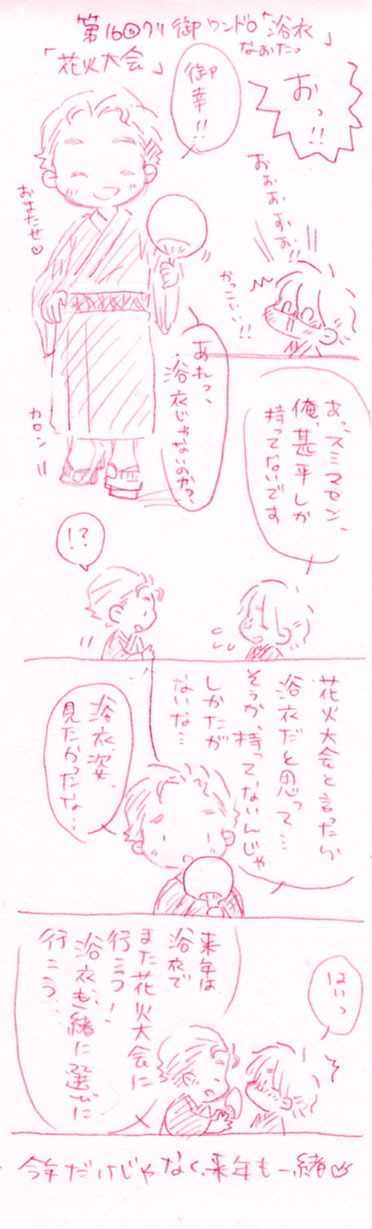 第16回クリ御ワンドロ「浴衣」
なおた。
「花火大会」
おっ!!
御幸!!
おぉぉぉぉぉ!!
かっこいい!!
おまたせ♡
カロン
あれっ、
浴衣じゃないのかっ、
あ、スミマセン、
俺、甚平しか
持ってないです
!?
花火大会と言ったら
浴衣だと思って…
そうか、持ってないんじゃ
しかたが
ないな…
浴衣姿、
見たかったな…
はいっ
来年は
浴衣で
また花火大会に
行こう!
浴衣も一緒に選びに
行こう
今年だけじゃなく、来年も一緒♡